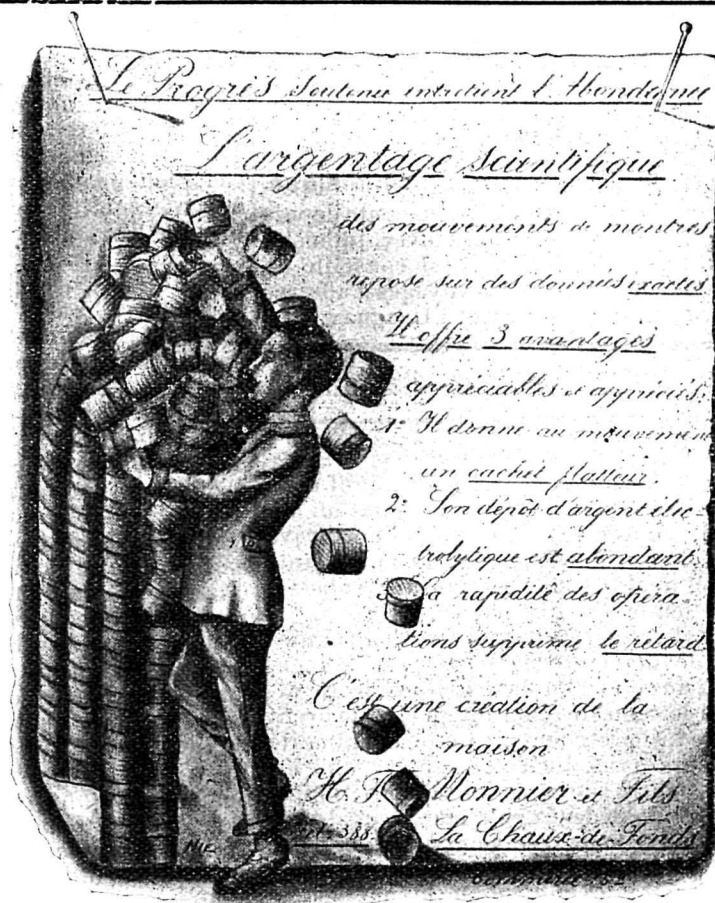 Le Progrès soutenu entretient l'Abondance
L'argentage scientifique
des mouvements de montres
repose sur des données exactes
Il offre 3 avantages
appréciables et appréciés:
1° Il donne au mouvement
un cachet flatteur.
2° Son dépôt d'argent élec-
trolytique est abondant.
3 La rapidité des opéra-
tions supprime le retard.
C'est une création de la
maison
H. Monnier et Fils
388 La Chaux-de-Fonds